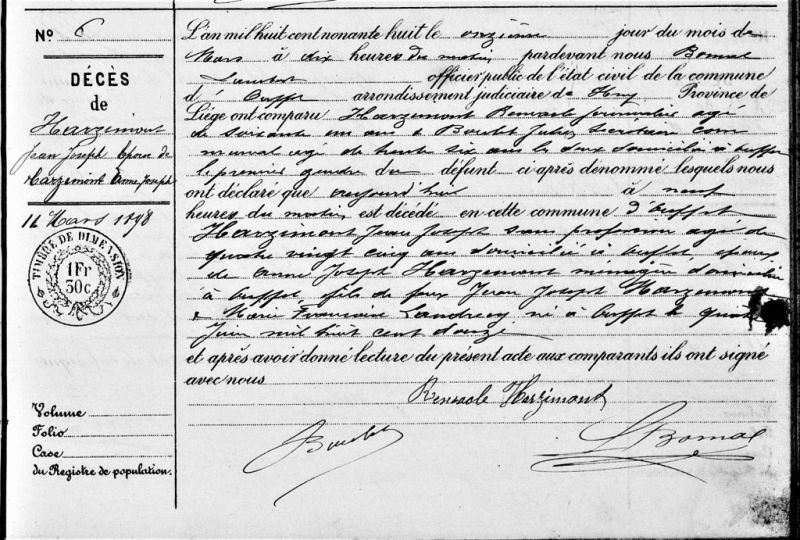 N° 6
DÉCÈS
de
Harzimont
Jean Joseph Epoux de
Harzimont Anne Joseph
11 Mars 1898
TIMBRE DE DIMENSION
1 Fr
30 c.
Volume
Folio
Case
du Registre de population.
L'An mil huit cent nonante huit le onzième jour du mois de
Mars à dix heures du matin, pardevant nous Bomal
Lambert officier public de l'état civil de la commune
d' Ouffet arrondissement judiciaire de Huy Province de
Liége ont comparu Harzimont Remacle journalier agé
de soixante un ans & Boulet Jules, secrétaire com
munal agé de trente six ans les deux domiciliés à Ouffet
le premier gendre du défunt ci-après dénommé lesquels nous
ont déclaré que aujourd'hui à neuf
heures du matin, est décédé en cette commune d'Ouffet
Harzimont Jean Joseph sans profession agé de
quatre vingt cinq ans domicilié à Ouffet, époux
de Anne Joseph Harzimont ménagère domiciliée
à Ouffet fils de feux Jean Joseph Harzimont
& Marie Françoise né à Ouffet le
Juin mil huit cent douze
et après avoir donné lecture du présent acte aux comparants ils ont signé
avec nous
Remacle Harzimont
Boulet
L Bomal